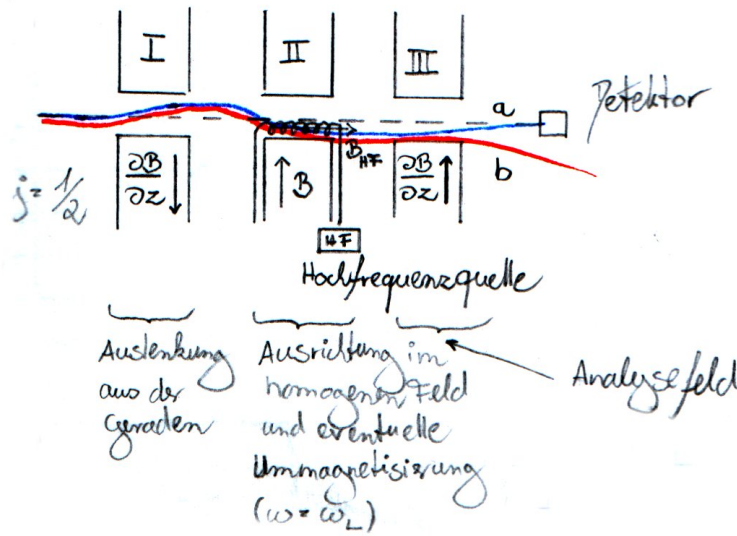 I II III
a
Detektor
b
B_HF
∂B/∂z ↓
↑ B
∂B/∂z ↑
j = 1/2
HF
Hochfrequenzquelle
Auslenkung
aus der
Geraden
Ausrichtung im
homogenen Feld
und eventuelle
Ummagnetisierung
(ω = ω_L)
Analysefeld